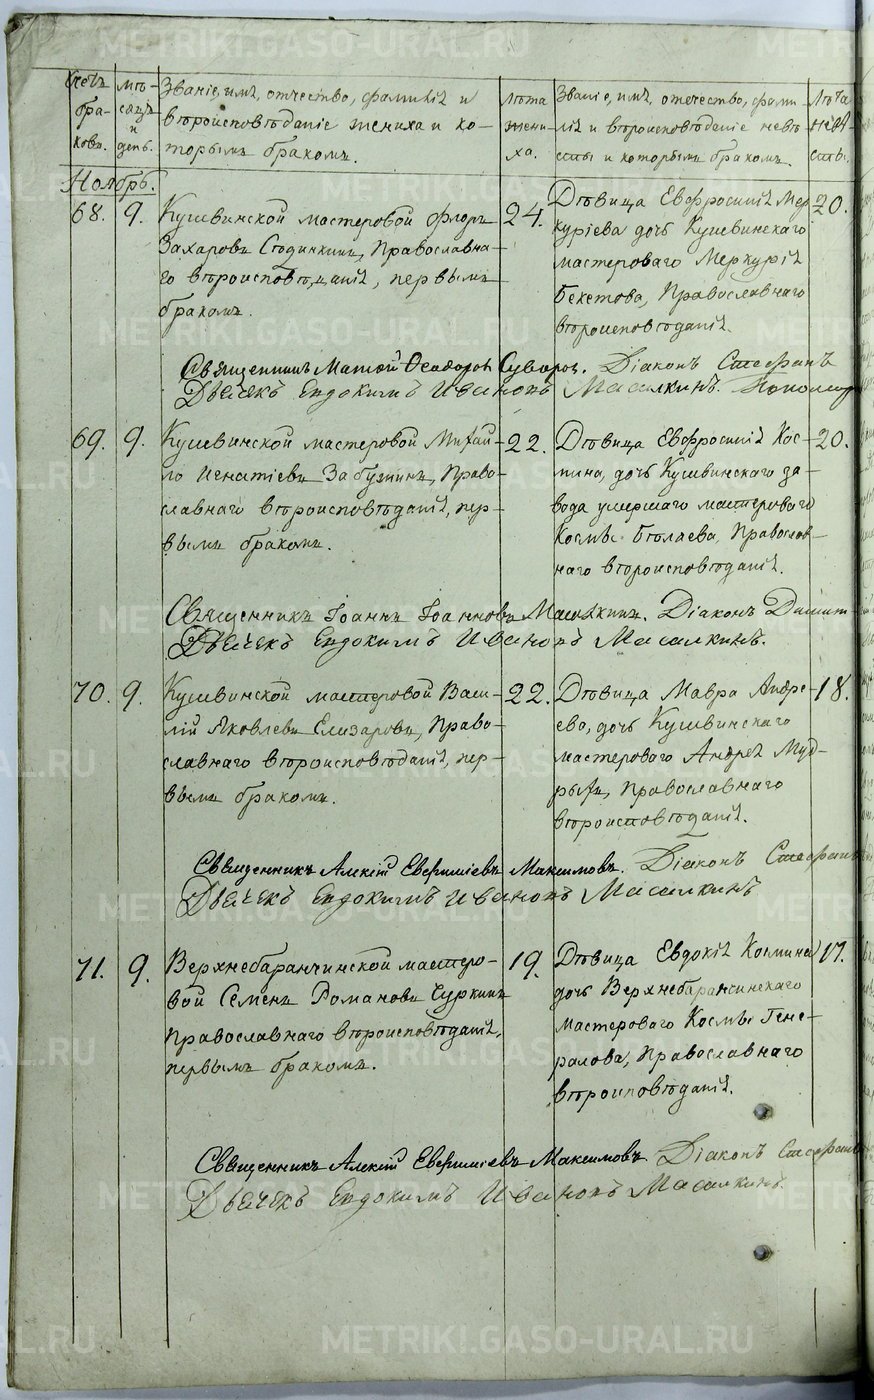 Счетъ бра- ковъ.
Мѣ- сяцъ и день.
Званіе, имя, отчество, фамилія и
вѣроисповѣданіе жениха и ко-
торымъ бракомъ.
Лѣта жени- ха.
Званіе, имя, отечество, фами
лія и вѣроисповѣданіе невѣ
сты и которымъ бракомъ.
Лѣта невѣ- сты.
Ноябрь.
68. 9.
Кушвинской мастеровой Флоръ
Захаровъ, Православна-
го вѣроисповѣданія, первымъ
бракомъ.
24.
Дѣвица Евфросинія Мер
куріева дочь Кушвинскаго
мастероваго Меркурія
Бекетова, Православнаго
вѣроисповѣданія.
20.
Священникъ Матѳій Ѳеодоровъ Суворов. Діаконъ Стефанъ
Дьячекъ Евдокимъ Ивановъ Масалкинъ. Пономар
69. 9.
Кушвинской мастеровой Михаи-
ло Игнатіевъ Забузинъ, Право-
славнаго вѣроисповѣданія, пер-
вымъ бракомъ.
22.
Дѣвица Евфросинія Кос-
мина, дочь Кушвинскаго за-
вода умершаго мастероваго
Космы Бѣляева, Православ-
наго вѣроисповѣданія.
20.
Священникъ Іоаннъ Іоанновъ. Діаконъ Димит-
Дьячекъ Евдокимъ Ивановъ Масалкинъ.
70. 9.
Кушвинской мастеровой Васи-
лій Яковлевъ Елизаровъ, Право-
славнаго вѣроисповѣданія, пер-
вымъ бракомъ.
22.
Дѣвица Мавра Андре-
ева, дочь Кушвинскаго
мастероваго Андрея Муд-
рыхъ, Православнаго
вѣроисповѣданія.
18.
Священникъ Алексій Евфиміевъ Максимовъ. Діаконъ Стефанъ
Дьячекъ Евдокимъ Ивановъ Масалкинъ
71. 9.
Верхнебаранчинской мастеро-
вой Семенъ Романовъ Чуркинъ
Православнаго вѣроисповѣданія,
первымъ бракомъ.
19.
Дѣвица Евдокія Космина
дочь Верхнебаранчинскаго
мастероваго Космы Гене-
ралова, Православнаго
вѣроисповѣданія.
17.
Священникъ Алексій Евфиміевъ Максимовъ Діаконъ Стефанъ
Дьячекъ Евдокимъ Ивановъ Масалкинъ.
METRIKI.GASO-URAL.RU